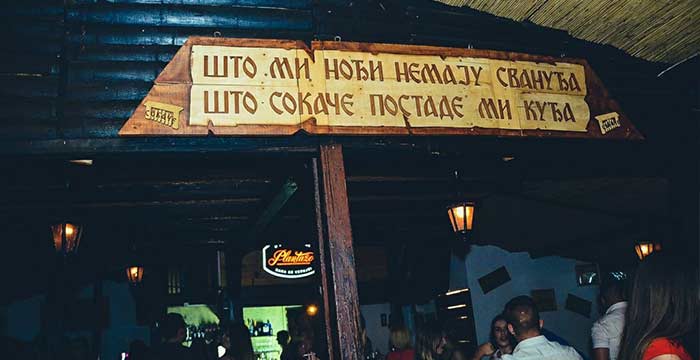 ШТО МИ НОЋИ НЕМАЈУ СВАНУЋА
ШТО СОКАЧЕ ПОСТАДЕ МИ КУЋА
Plantaže